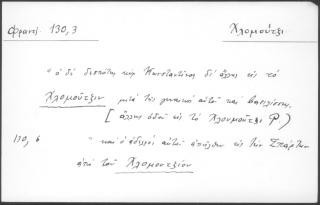 Φραντζ. 130,3 Χλομούτζι
"ὁ δὲ δεσπότης κὺρ Κωνσταντῖνος δι' ἄλλης εἰς τὸ
Χλομούτζιν μετὰ τῆς γυναικὸς αὐτοῦ καὶ βασιλίσσης.
[ ἄλλης ὁδοῦ εἰς τὸ Χλουμούτζι P )
130,6 " καὶ ὁ ἀδελφὸς αὐτοῦ ἀπῆλθεν εἰς τὴν Σπάρτην
ἀπὸ τοῦ Χλομουτζίου